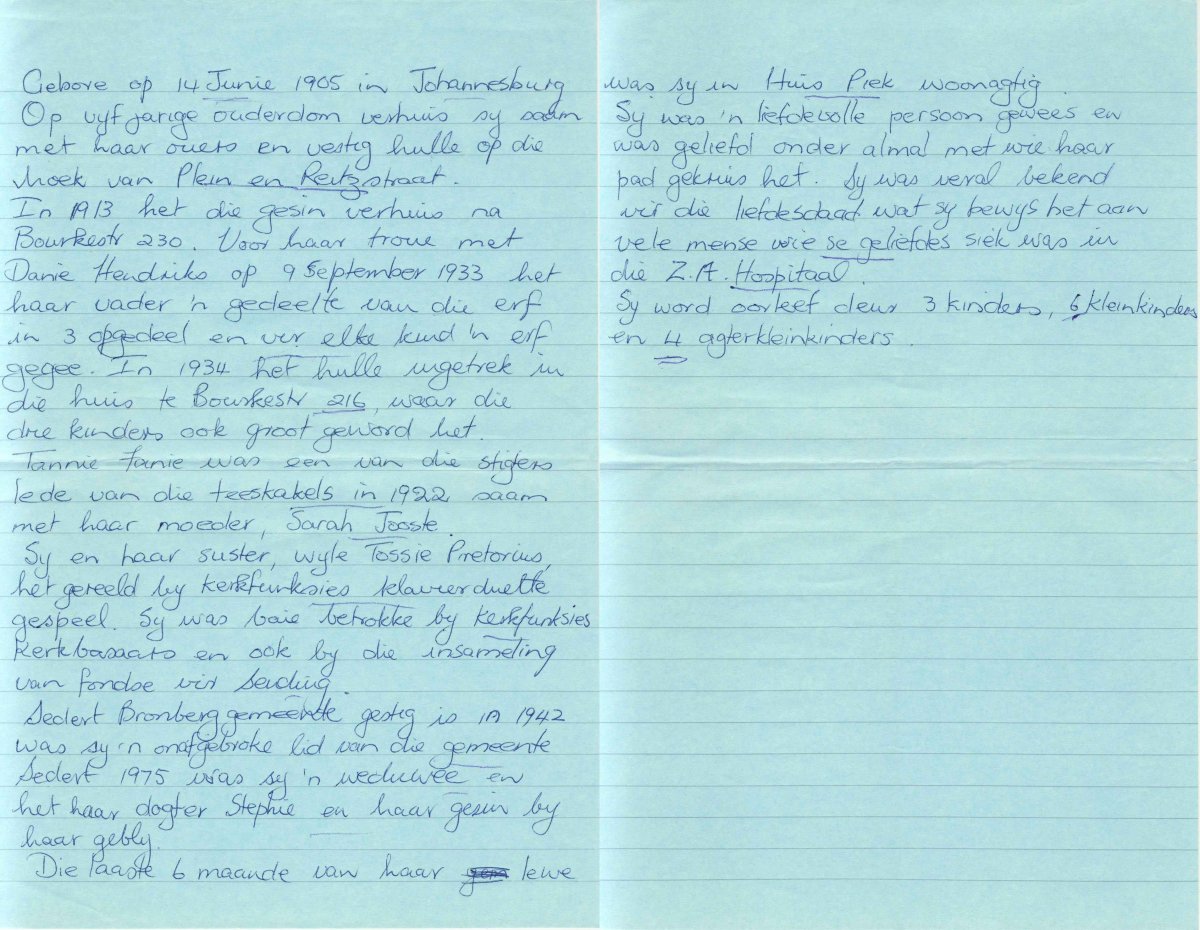 Gebore op 14 Junie 1905 in Johannesburg
Op vyfjarige ouderdom verhuis sy saam
met haar ouers en vestig hulle op die
hoek van Plein en Reitzstraat.
In 1913 het die gesin verhuis na
Bourkestr 230. Voor haar troue met
Danie Hendriks op 9 September 1933 het
haar vader 'n gedeelte van die erf
in 3 opgedeel en vir elke kind 'n erf
gegee. In 1934 het hulle ingetrek in
die huis te Bourkestr 216, waar die
drie kinders ook groot geword het.
Tannie Fanie was een van die stigters
lede van die teeskakels in 1922 saam
met haar moeder, Sarah Jooste.
Sy en haar suster, wyle Tossie Pretorius,
het gereeld by kerkfunksies klavierduette
gespeel. Sy was baie betrokke by kerkfunksies
kerkbasaars en ook by die insameling
van fondse vir sending.
Sedert Bronberggemeente gestig is in 1942
was sy 'n onafgebroke lid van die gemeente
Sedert 1975 was sy 'n weduwee en
het haar dogter Stephie en haar gesin by
haar gebly.
Die laaste 6 maande van haar lewe
was sy in Huis Piek woonagtig.
Sy was 'n liefdevolle persoon gewees en
was geliefd onder almal met wie haar
pad gekruis het. Sy was veral bekend
vir die liefdesdaad wat sy bewys het aan
vele mense wie se geliefdes siek was in
die Z.A. Hospitaal.
Sy word oorleef deur 3 kinders, 6 kleinkinders
en 4 agterkleinkinders.